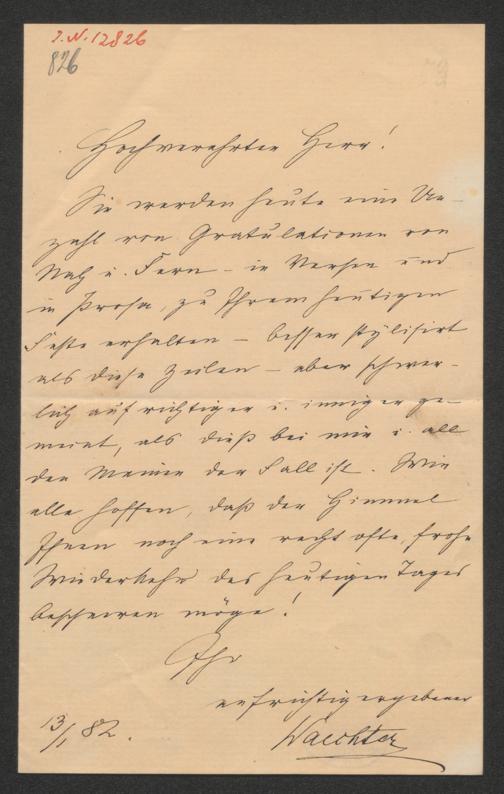 I.N. 12826
826
Hochverehrter Herr!
Sie werden heute eine Un-
zahl von Gratulationen von
Nah u. Fern – in Versen und
in Prosa, zu Ihrem heutigen
Feste erhalten – besser stÿlisirt
als diese Zeilen – aber schwer-
lich aufrichtiger u. inniger ge-
meint, als dieß bei mir u. all
den Meinen der Fall ist. Wir
alle hoffen, daß der Himmel
Ihnen noch eine recht ofte, frohe
Wiederkehr des heutigen Tages
bescheeren möge!
Ihr
aufrichtig ergebener
Waechter
13/1 82.